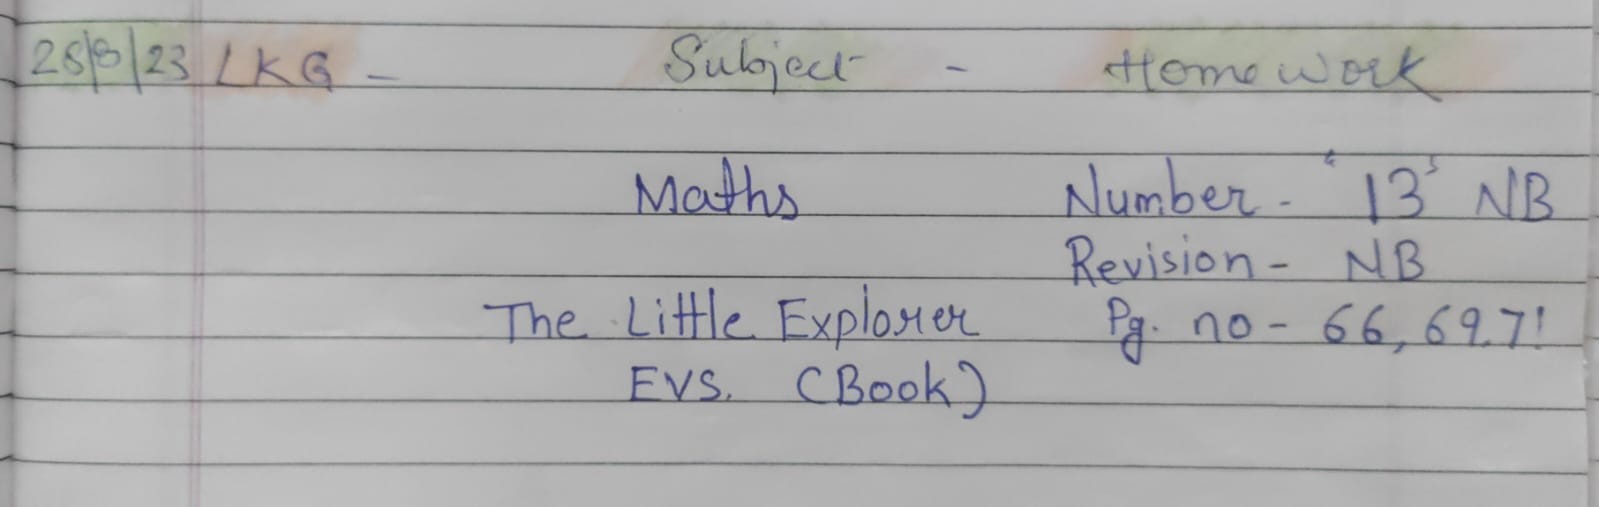 28/8/23 LKG - Subject - Homework
Maths Number - "13" NB
Revision - NB
The Little Explorer Pg. no - 66, 69, 71
EVS. (Book)